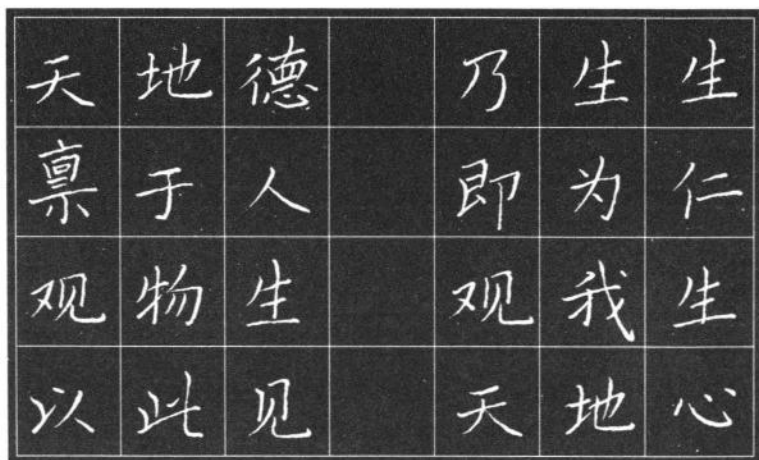 天地德 乃生生
禀于人 即为仁
观物生 观我生
以此见 天地心